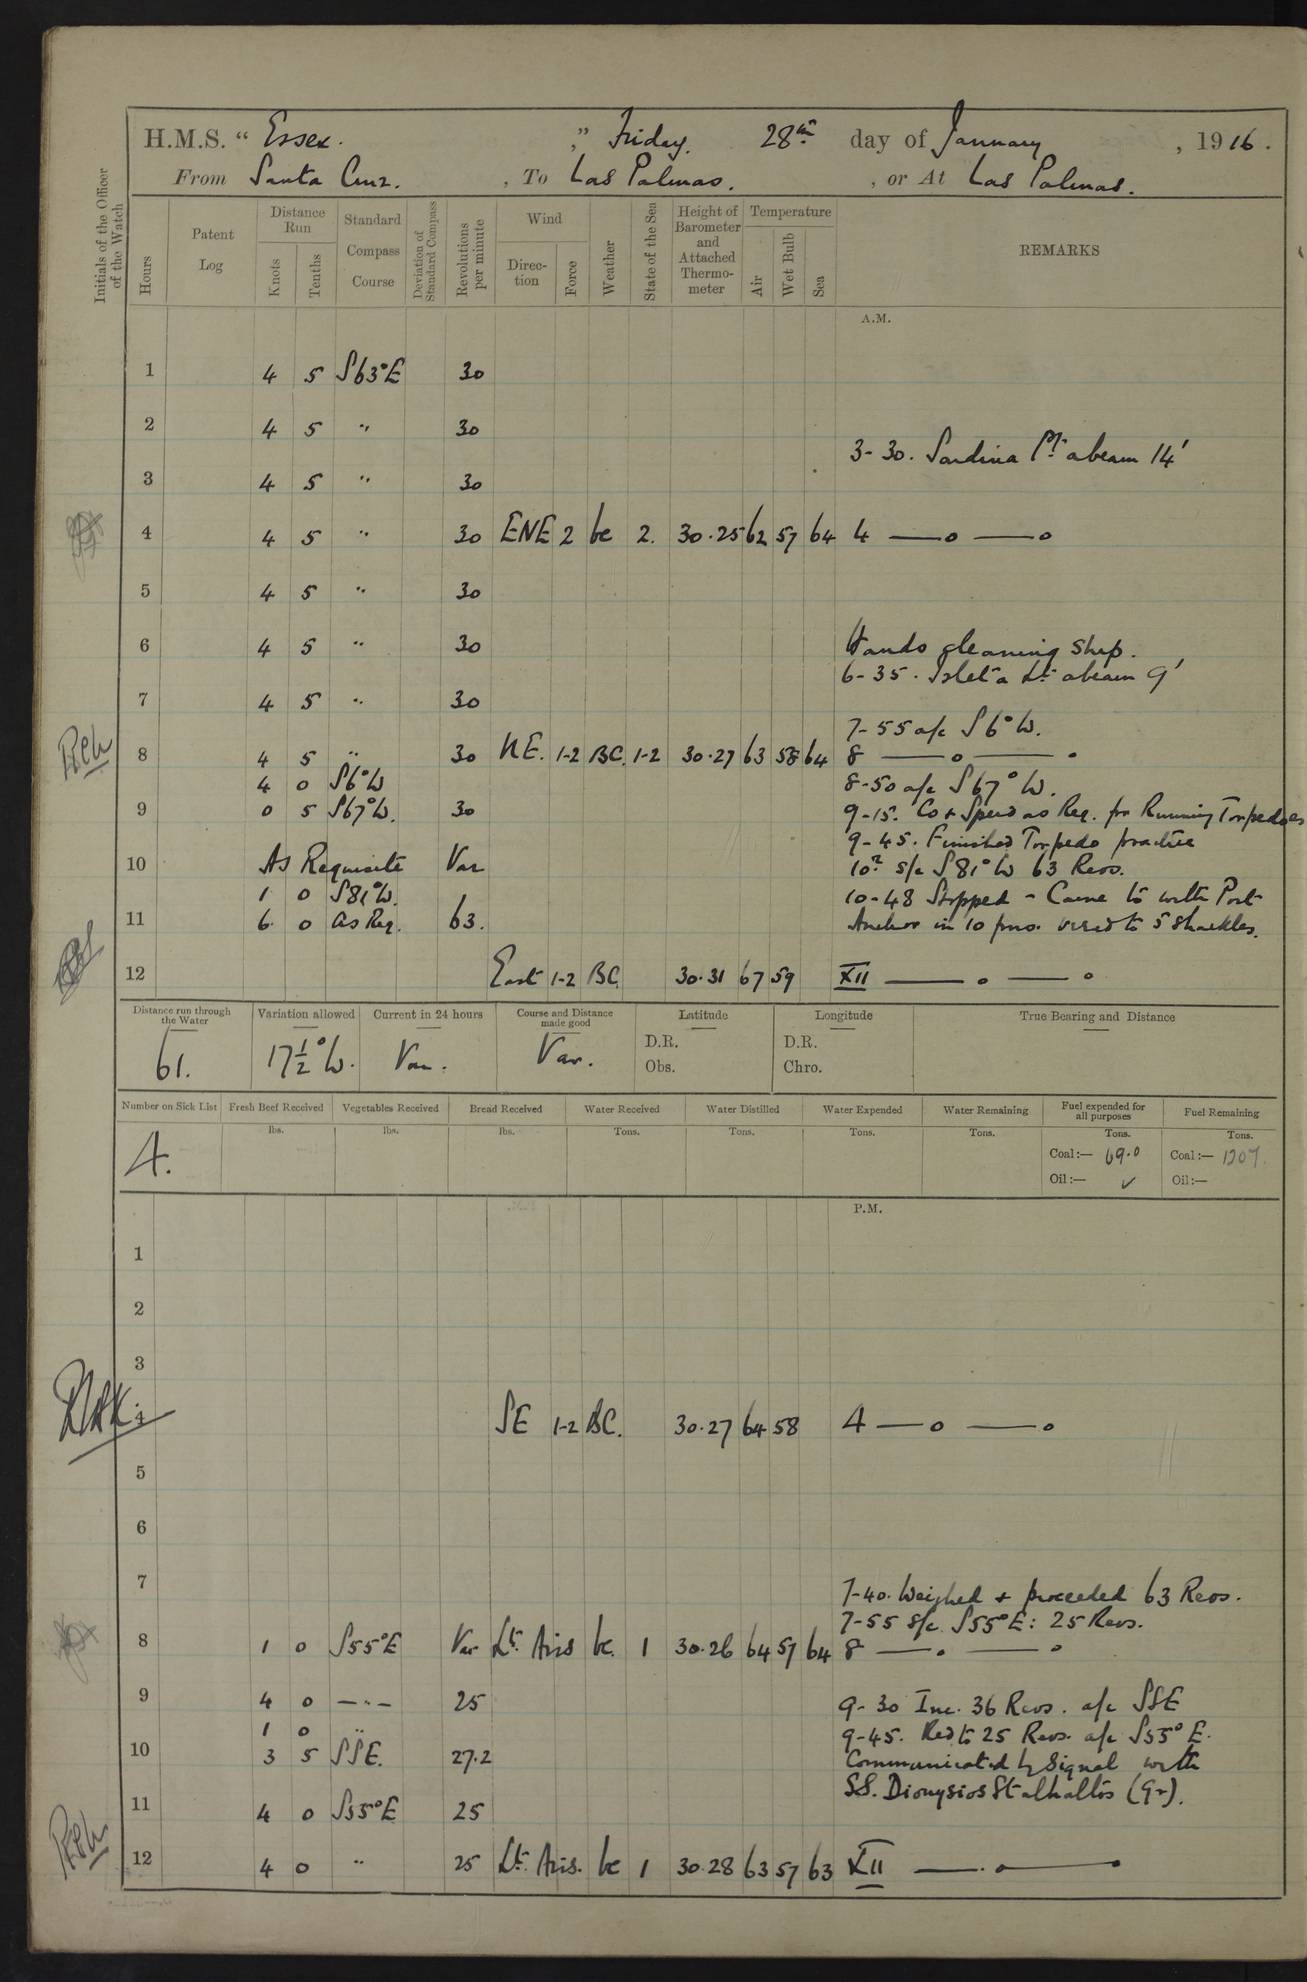 H.M.S. “ Essex. ,” Friday. 28th day of January , 1916.
From Santa Cruz. , To Las Palmas. , or At Las Palmas.
Initials of the Officer of the Watch
Hours
Patent Log
Distance Run
Knots
Tenths
Standard Compass Course
Deviation of Standard Compass
Revolutions per minute
Wind
Direction
Force
Weather
State of the Sea
Height of Barometer and Attached Thermometer
Temperature
Air
Wet Bulb
Sea
REMARKS
A.M.
1 4 5 S63°E 30
2 4 5 " 30
3-30. Sardina Pt. abeam 14'
3 4 5 " 30
4 4 5 " 30 ENE 2 bc 2. 30.25 62 57 64 4 —o —o
5 4 5 " 30
6 4 5 " 30 Hands cleaning ship.
6-35. Isleta Lt. abeam 9'
7 4 5 " 30
7-55 a/c S6°W.
8 4 5 " 30 NE. 1-2 BC. 1-2 30.27 63 58 64 8 —o —o
4 0 S6°W 8-50 a/c S67°W.
9 0 5 S67°W. 30 9-15. Co + Speed as Req. for Running Torpedoes
9-45. Finished Torpedo practice
10 As Requisite Var 10.? s/c S81°W 63 Revs.
1 0 S81°W. 10-48 Stopped - Came to with Port
11 6 0 as Req. 63. Anchor in 10 fms. veered to 5 shackles.
12 East 1-2 BC 30.31 67 59 XII —o —o
Distance run through the Water
61.
Variation allowed
17½°W.
Current in 24 hours
Var.
Course and Distance made good
Var.
Latitude
D.R.
Obs.
Longitude
D.R.
Chro.
True Bearing and Distance
Number on Sick List
4.
Fresh Beef Received
lbs.
Vegetables Received
lbs.
Bread Received
lbs.
Water Received
Tons.
Water Distilled
Tons.
Water Expended
Tons.
Water Remaining
Tons.
Fuel expended for all purposes
Tons.
Coal:— 69.0
Oil:— ✓
Fuel Remaining
Tons.
Coal:— 1207.
Oil:—
P.M.
1
2
3
4 SE 1-2 BC. 30.27 64 58 4 —o —o
5
6
7
7-40. Weighed + proceeded 63 Revs.
7-55 s/c S55°E: 25 Revs.
8 1 0 S55°E Var Lt. Airs bc. 1 30.26 64 57 64 8 —o —o
9 4 0 —"— 25 9-30 Inc. 36 Revs. a/c SSE
1 0 " 9-45. Red to 25 Revs. a/c S55°E.
10 3 5 SSE. 27.2 Communicated by Signal with
SS. Dionysios Stathatos (Gr).
11 4 0 S55°E 25
12 4 0 " 25 Lt. Airs. bc 1 30.28 63 57 63 XII —o —o